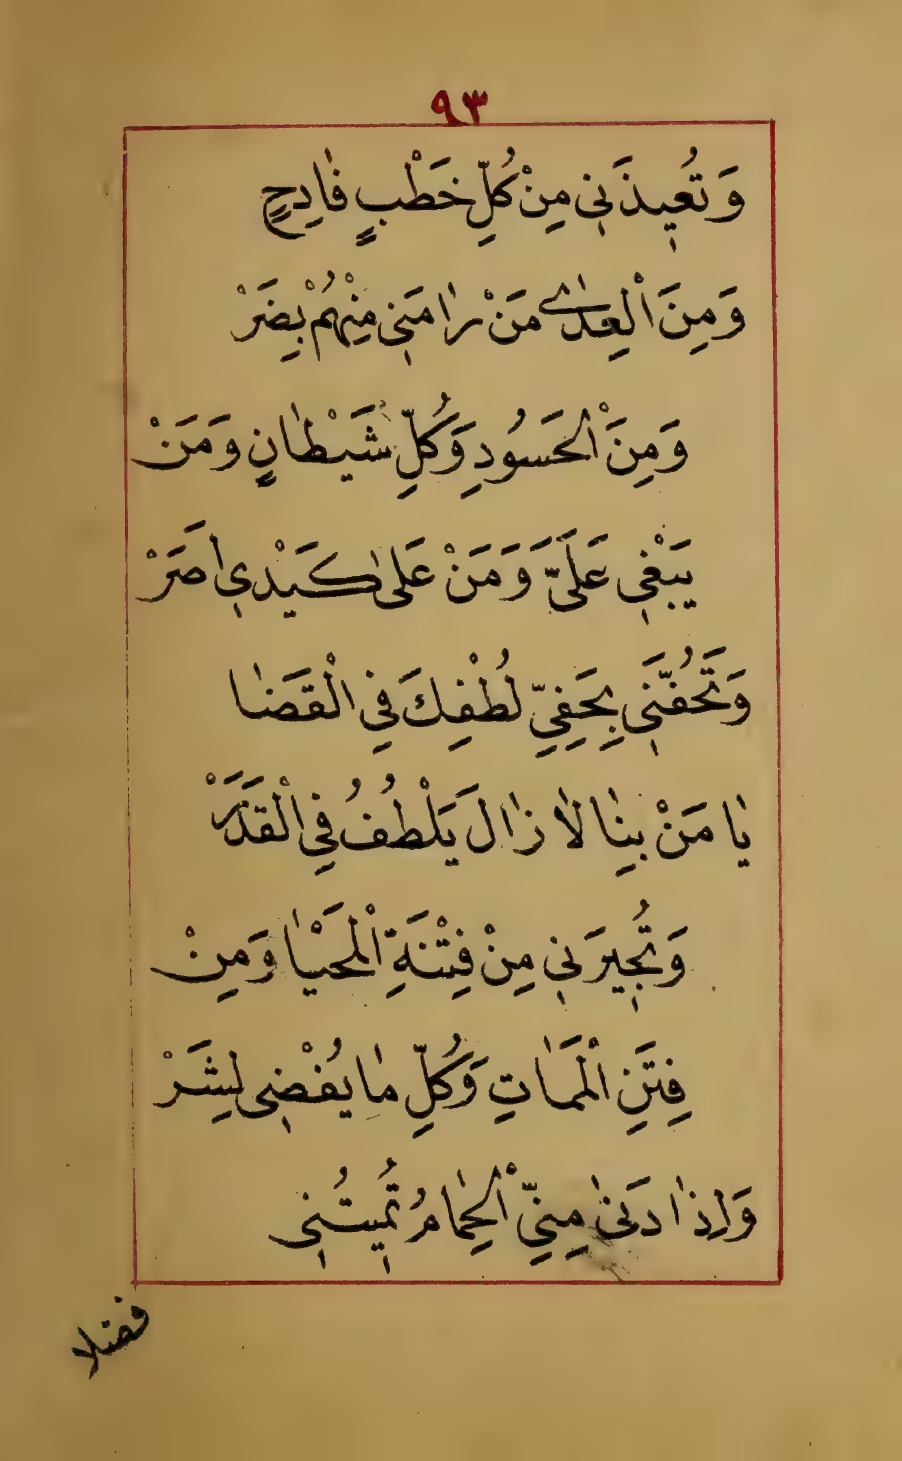 ٩٣
وَتُعِيذَنِي مِنْ كُلِّ خَطْبٍ فَادِحٍ
وَمِنَ الْعِدٰى مَنْ رَامَنِي مِنْهُمْ بِضَرْ
وَمِنَ الْحَسُودِ وَكُلِّ شَيْطَانٍ وَمَنْ
يَبْغِي عَلَيَّ وَمَنْ عَلىٰ كَيْدِي اَصَرْ
وَتَحُفَّنِي بِحَفِيِّ لُطْفِكَ فِي الْقَضَا
يَا مَنْ بِنَا لَا زَالَ يَلْطُفُ فِي الْقَدَرْ
وَتُجِيرَنِي مِنْ فِتْنَةِ الْمَحْيَا وَمِنْ
فِتَنِ الْمَمَاتِ وَكُلِّ مَا يُفْضِي لِشَرْ
وَاِذَا دَنىٰ مِنِّي الْحِمَامُ تُمِيتُنِي
فضلا